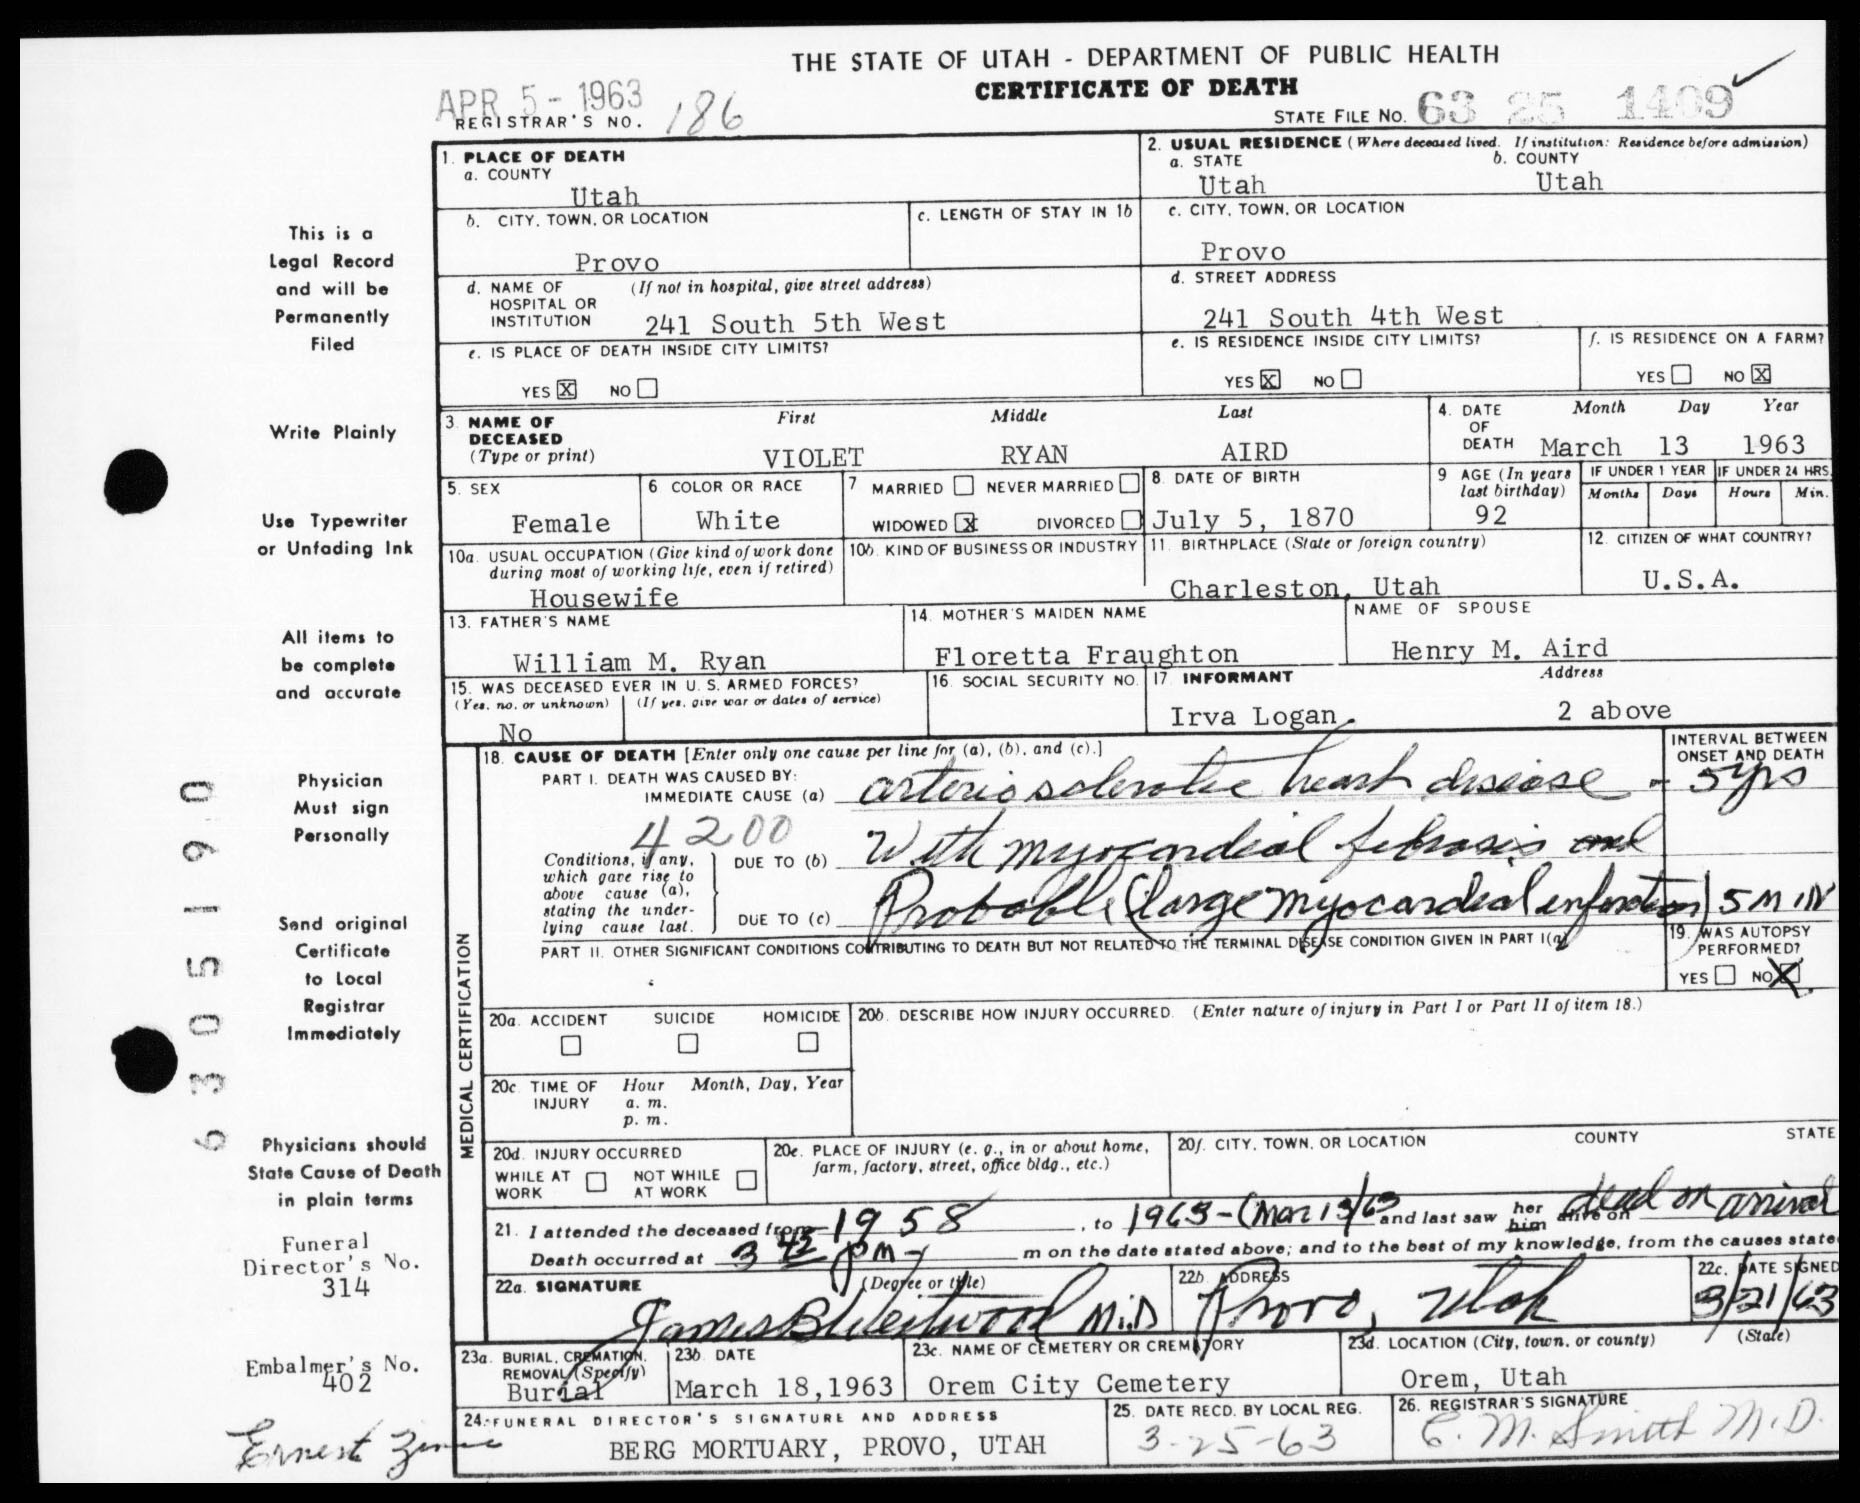 THE STATE OF UTAH - DEPARTMENT OF PUBLIC HEALTH
CERTIFICATE OF DEATH
APR 5 - 1963
REGISTRAR'S NO. 186
STATE FILE NO. 63 25 1409
1. PLACE OF DEATH
a. COUNTY
Utah
2. USUAL RESIDENCE (Where deceased lived. If institution: Residence before admission)
a. STATE b. COUNTY
Utah Utah
b. CITY, TOWN, OR LOCATION
Provo
c. LENGTH OF STAY IN 1b
c. CITY, TOWN, OR LOCATION
Provo
d. NAME OF (If not in hospital, give street address)
HOSPITAL OR
INSTITUTION 241 South 5th West
d. STREET ADDRESS
241 South 4th West
e. IS PLACE OF DEATH INSIDE CITY LIMITS?
YES X NO
e. IS RESIDENCE INSIDE CITY LIMITS?
YES X NO
f. IS RESIDENCE ON A FARM?
YES NO X
3. NAME OF DECEASED (Type or print)
First Middle Last
VIOLET RYAN AIRD
4. DATE OF DEATH
Month Day Year
March 13 1963
5. SEX
Female
6 COLOR OR RACE
White
7 MARRIED NEVER MARRIED
WIDOWED X DIVORCED
8. DATE OF BIRTH
July 5, 1870
9 AGE (In years last birthday)
92
IF UNDER 1 YEAR
Months Days
IF UNDER 24 HRS.
Hours Min.
10a. USUAL OCCUPATION (Give kind of work done
during most of working life, even if retired)
Housewife
10b. KIND OF BUSINESS OR INDUSTRY
11. BIRTHPLACE (State or foreign country)
Charleston, Utah
12. CITIZEN OF WHAT COUNTRY?
U.S.A.
13. FATHER'S NAME
William M. Ryan
14. MOTHER'S MAIDEN NAME
Floretta Fraughton
NAME OF SPOUSE
Henry M. Aird
15. WAS DECEASED EVER IN U. S. ARMED FORCES?
(Yes, no, or unknown) (If yes, give war or dates of service)
No
16. SOCIAL SECURITY NO.
17. INFORMANT Address
Irva Logan. 2 above
18. CAUSE OF DEATH [Enter only one cause per line for (a), (b), and (c).]
INTERVAL BETWEEN
ONSET AND DEATH
PART I. DEATH WAS CAUSED BY:
IMMEDIATE CAUSE (a) arterio sclerotic heart disease - 5 yrs
4200
Conditions, if any,
which gave rise to
above cause (a),
stating the under-
lying cause last.
DUE TO (b) With myocardial fibrosis and
DUE TO (c) Probable (large myocardial infarction) 5 MIN
PART II. OTHER SIGNIFICANT CONDITIONS CONTRIBUTING TO DEATH BUT NOT RELATED TO THE TERMINAL DISEASE CONDITION GIVEN IN PART I(a)
19. WAS AUTOPSY
PERFORMED?
YES NO X
MEDICAL CERTIFICATION
20a. ACCIDENT SUICIDE HOMICIDE
20b. DESCRIBE HOW INJURY OCCURRED. (Enter nature of injury in Part I or Part II of item 18.)
20c. TIME OF INJURY
Hour Month, Day, Year
a. m.
p. m.
20d. INJURY OCCURRED
WHILE AT WORK
NOT WHILE AT WORK
20e. PLACE OF INJURY (e. g., in or about home,
farm, factory, street, office bldg., etc.)
20f. CITY, TOWN, OR LOCATION COUNTY STATE
21. I attended the deceased from 1958, to 1963 - (Mar 13/63 and last saw her him alive on dead on arrival
Death occurred at 3 42 pm m on the date stated above; and to the best of my knowledge, from the causes state
22a. SIGNATURE (Degree or title)
James B Westwood M.D
22b. ADDRESS
Provo, Utah
22c. DATE SIGNED
3/21/63
23a. BURIAL, CREMATION,
REMOVAL (Specify)
Burial
23b. DATE
March 18,1963
23c. NAME OF CEMETERY OR CREMATORY
Orem City Cemetery
23d. LOCATION (City, town, or county) (State)
Orem, Utah
24. FUNERAL DIRECTOR'S SIGNATURE AND ADDRESS
BERG MORTUARY, PROVO, UTAH
25. DATE RECD. BY LOCAL REG.
3-25-63
26. REGISTRAR'S SIGNATURE
C. M. Smith M.D.
This is a
Legal Record
and will be
Permanently
Filed
Write Plainly
Use Typewriter
or Unfading Ink
All items to
be complete
and accurate
Physician
Must sign
Personally
Send original
Certificate
to Local
Registrar
Immediately
Physicians should
State Cause of Death
in plain terms
Funeral
Director's No.
314
Embalmer's No.
402
Ernest
6305190